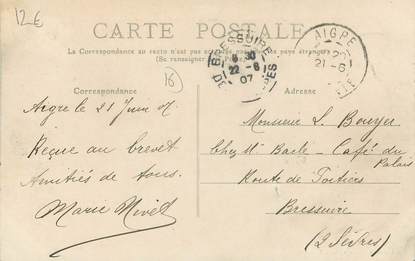 12€
CARTE POSTALE
La Correspondance au recto n'est pas acceptée par tous les pays étrangers
(Se renseigner
Correspondance
Adresse
16
BRESSUIRE
8 30
22-6
07
AIGRE
21-6
Aigre le 21 Juin 07
Reçue au brevet
Amitiés de tous.
Marie Nivet
Monsieur L. Bouyer
Chez Mr Barle - Café du
Palais
Route de Poitiers
Bressuire
(2 Sèvres)